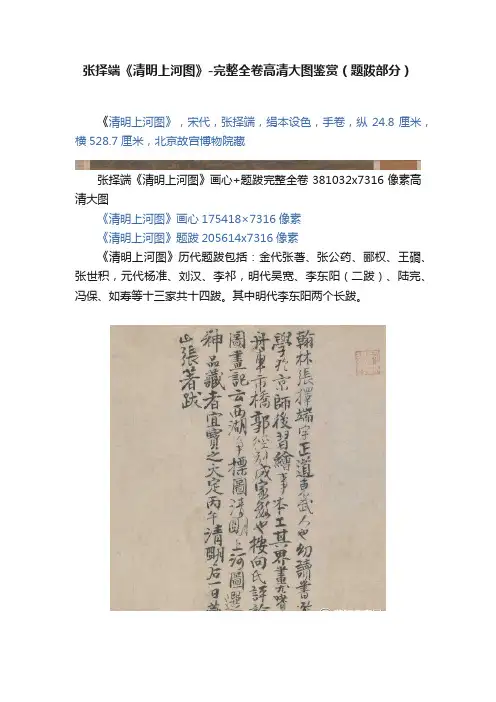 张择端《清明上河图》-完整全卷高清大图鉴赏（题跋部分）
《清明上河图》，宋代，张择端，绢本设色，手卷，纵 24.8 厘米，
横 528.7 厘米，北京故宫博物院藏
张择端《清明上河图》画心+题跋完整全卷 381032x7316 像素高
清大图
《清明上河图》画心 175418×7316 像素
《清明上河图》题跋 205614x7316 像素
《清明上河图》历代题跋包括：金代张著、张公药、郦权、王磵、
张世积，元代杨准、刘汉、李祁，明代吴宽、李东阳（二跋）、陆完、
冯保、如寿等十三家共十四跋。其中明代李东阳两个长跋。
翰林張擇端字正道東武人也幼讀書遊
學於京師後習繪事本工其界畫尤嗜
舟車市橋郭徑別成家數也按向氏評論
圖畫記云西湖爭標圖清明上河圖選
神品藏者宜寶之大定丙午清明后一日燕
山張著跋